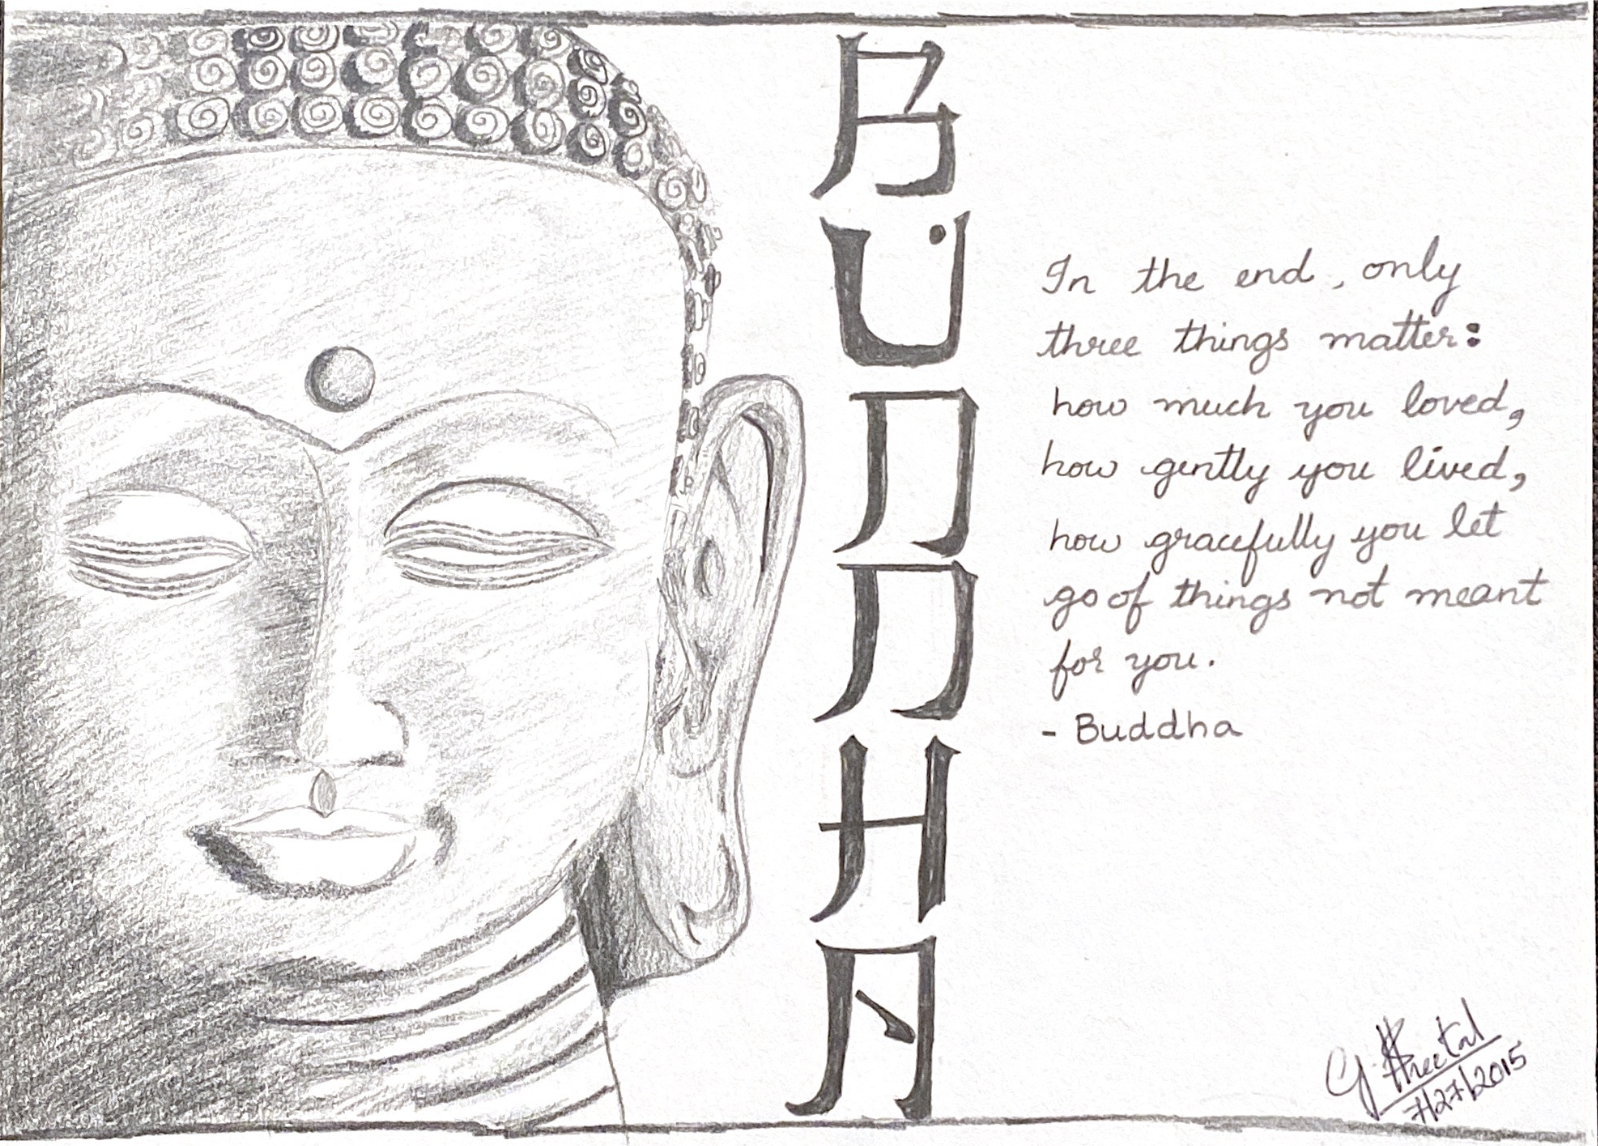 BUDDHA
In the end, only
three things matter:
how much you loved,
how gently you lived,
how gracefully you let
go of things not meant
for you.
- Buddha
G. Sheetal
7/27/2015